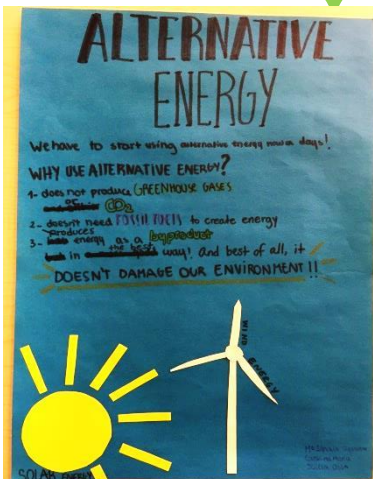 ALTERNATIVE
ENERGY
We have to start using alternative energy now a days!
WHY USE ALTERNATIVE ENERGY?
1- does not produce GREENHOUSE GASES
or CO2
2- doesn't need FOSSIL FUELS to create energy
produces
3- energy as a byproduct
the best
in way! And best of all, it
DOESN'T DAMAGE OUR ENVIRONMENT!!
WIND
ENERGY
SOLAR ENERGY